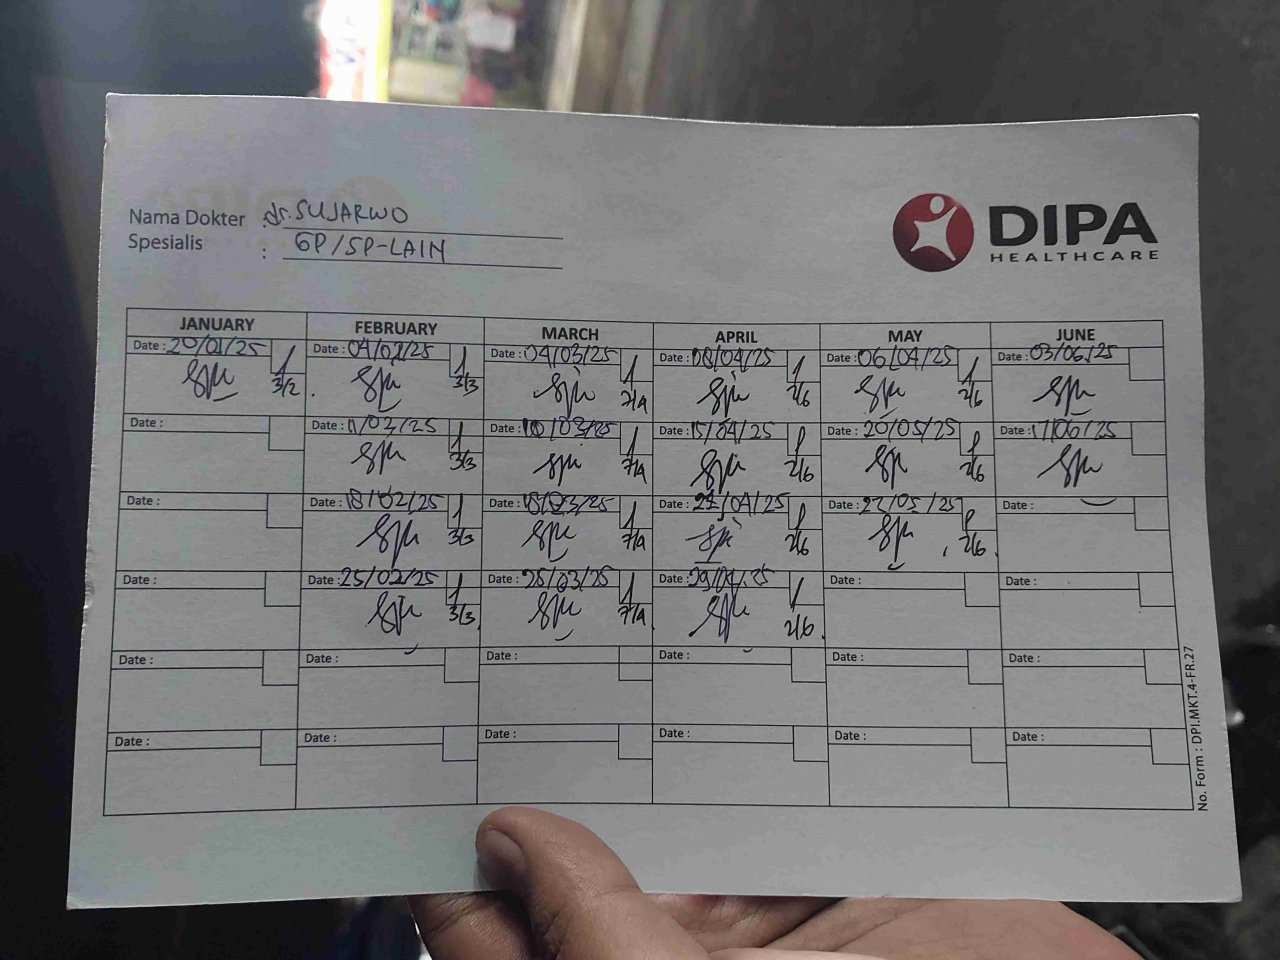 Nama Dokter : dr. SUJARWO
Spesialis : GP/SP-LAIN
DIPA
HEALTHCARE
JANUARY FEBRUARY MARCH APRIL MAY JUNE
Date : 20/01/25 Date : 04/02/25 Date : 04/03/25 Date : 08/04/25 Date : 06/04/25 Date : 03/06/25
3/2 3/3 7/4 2/6 2/6
Date : Date : 11/02/25 Date : 10/03/25 Date : 15/04/25 Date : 20/05/25 Date : 17/06/25
3/3 7/4 2/6 2/6
Date : Date : 18/02/25 Date : 18/03/25 Date : 22/04/25 Date : 27/05/25 Date :
3/3 7/4 2/6 2/6
Date : Date : 25/02/25 Date : 25/03/25 Date : 29/04/25 Date : Date :
3/3 7/4 2/6
Date : Date : Date : Date : Date : Date :
Date : Date : Date : Date : Date : Date :
No. Form : DPI.MKT.4-FR.27